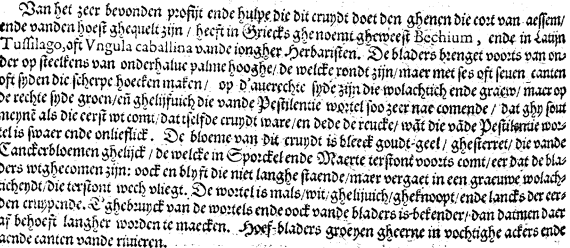 Van het zeer bevonden profijt ende hulpe die dit cruydt doet den ghenen die cort van aessem/
ende vanden hoest ghequelt zijn / heeft in Griecks ghenoemt gheweest Bechium, ende in Latijn
Tussilago, oft Vngula caballina vande iongher Herbaristen. De bladers brenget voorts van on-
der op steelkens van onderhalue palme hooghe/ de welcke rondt zijn/ maer met ses oft seuen canten
oft syden die scherpe hoecken maken / op d'auerechte syde zijn die wolachtich ende graew/ maer op
de rechte syde groen/ en ghelijfuich die vande Pestilentie wortel soo zeer nae comende / dat ghy sout
meynē als die eerst wt comt/ dat tselfde cruydt ware/ en dede de reucke/ wāt die vāde Pestilentie wor-
tel is swaer ende onlieflick. De bloeme van dit cruydt is bleeck goudt-geel / ghesterret/ die vande
Canckerbloemen ghelijck / de welcke in Sporckel ende Maerte terstont voorts comt/ eer dat de bla-
ders wtghecomen zijn: oock en blyft die niet langhe staende/ maer vergaet in een graeuwe wolach-
ticheydt/ die terstont wech vliegt. De wortel is mals/ wit/ ghelijuich/ gheknoopt/ ende lancks der eer-
den cruypende. T'ghebruyck van de wortels ende oock vande bladers is bekender/ dan datmen daer
af behoeft langher worden te maecken. Hoef-bladers groeyen gheerne in vochtighe ackers ende
aende canten vande riuieren.